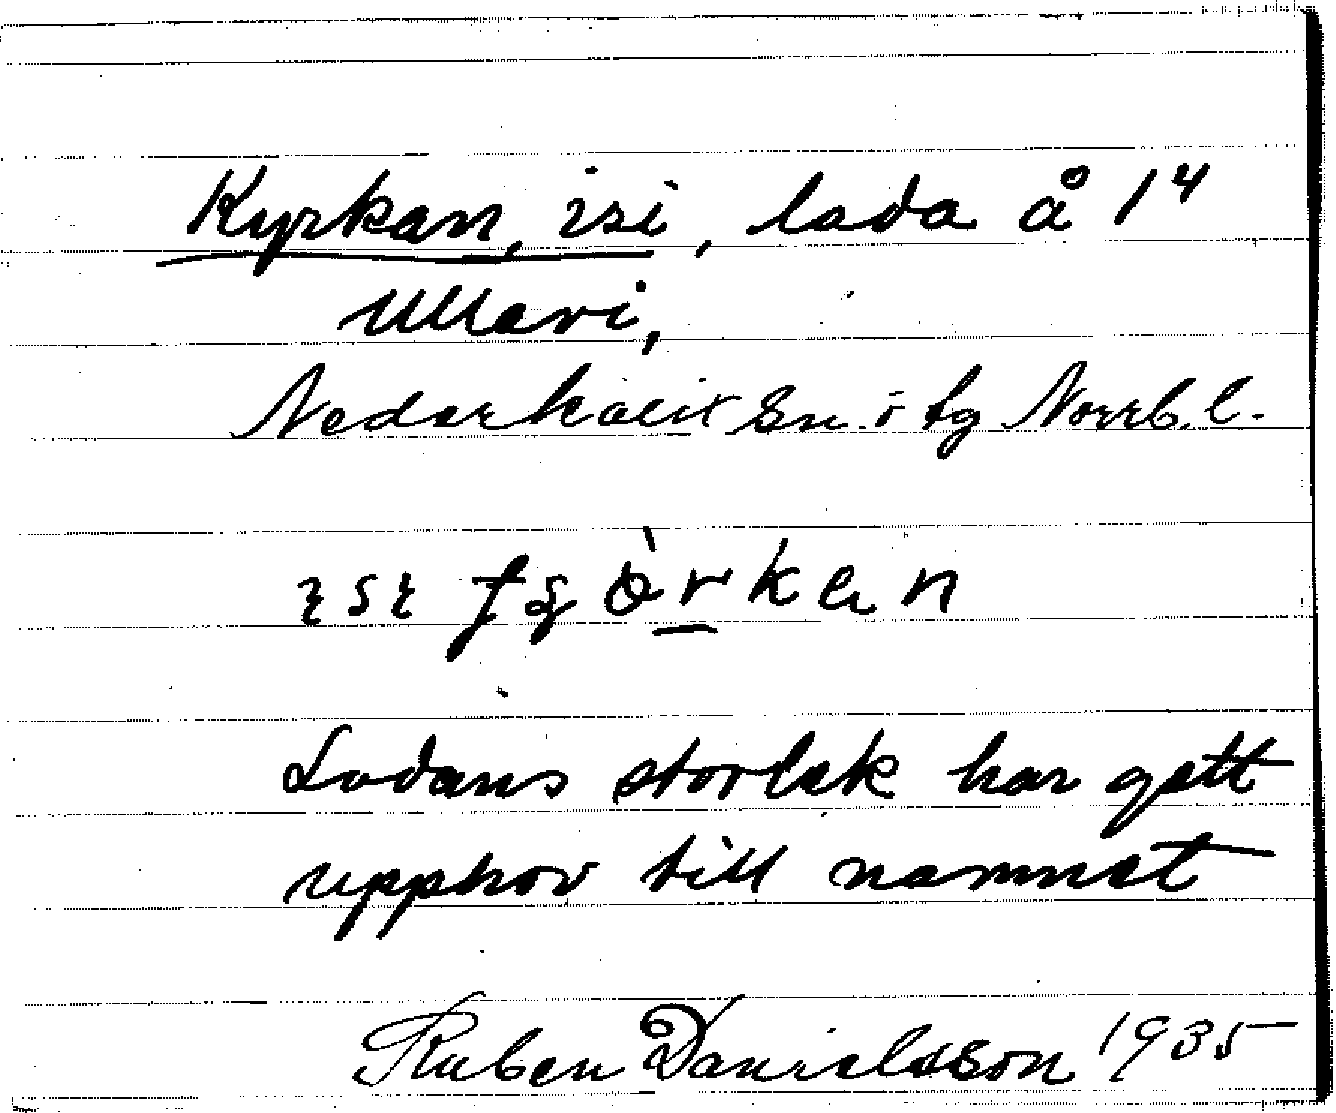 Kyrkan, isi, lada å 1⁴
Ullavi,
Nederkalix Sn. i tg Norrb. l.
Ladans storlek har gett
upphov till namnet
Ruben Danielsson 1935